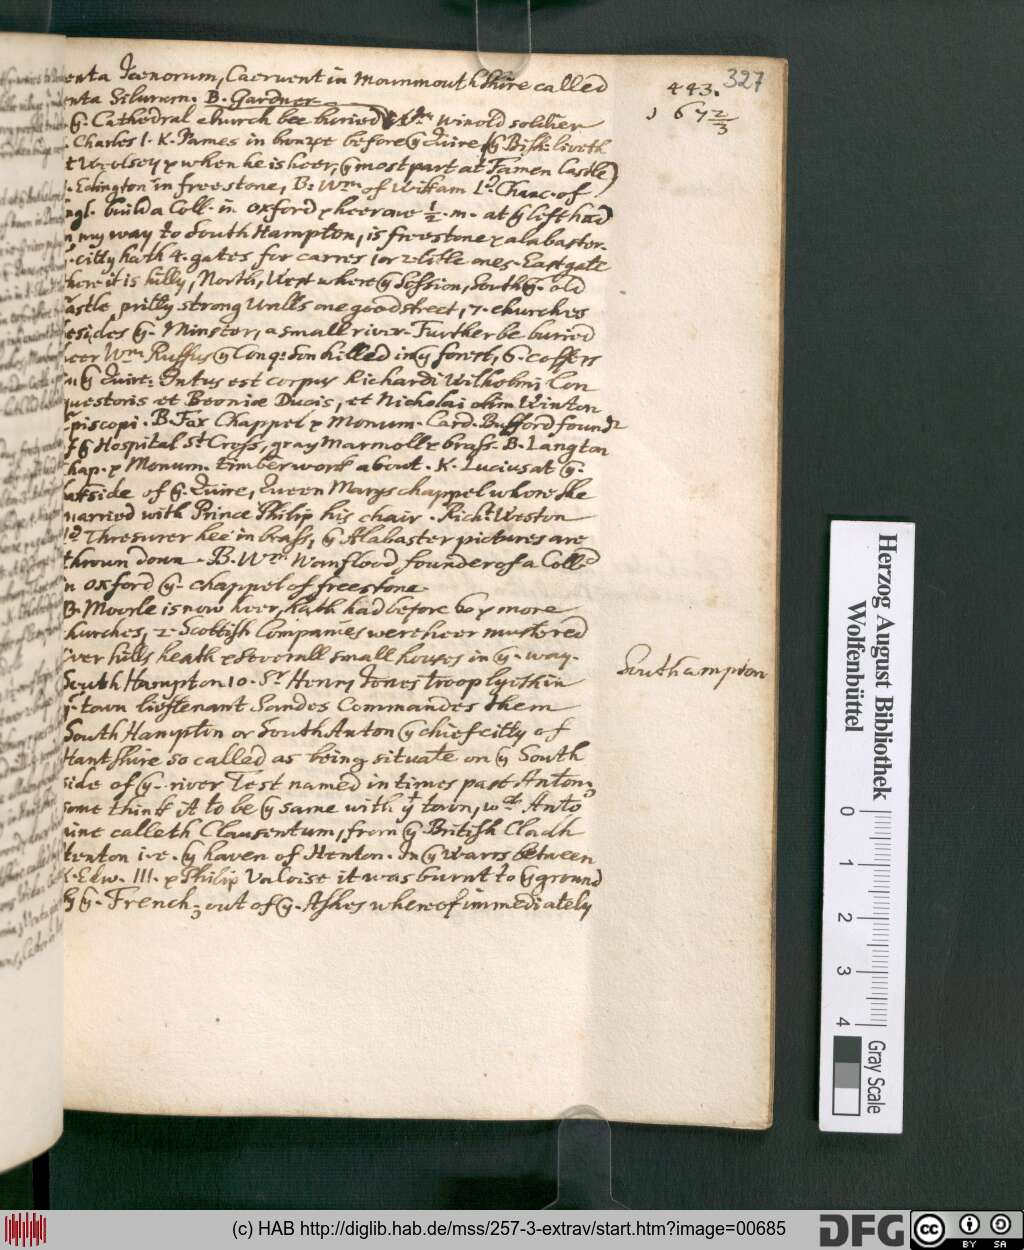 443. 327
1 6 7 2/3
enta Icenorum, Caerwent in Mounmouthshire called
enta Silurum. B. Gardner
ẏ. Cathedral church bee buried winold soldier
Charles 1. K. James in bronze before ẏ Quire, ẏ Bish: liveth
t Woolsey & when he is heer, ẏ most part at Famen Castle)
Edington in freestone, B: Wm. of Wikam Ld. Chanc. of
ngl. build a Coll. in oxford & heer one ½. m. at ẏ left hand
n my way to South Hampton, is freestone & alabaster.
citty hath 4. gates for carres 1 or 2 litle ones. Eastgate
here it is hilly, North, West where ẏ Session, South ẏ. old
astle, pritty strong walls one good street, 7. churches
esides ẏ. Minster, a small river. Further be buried
eer Wm. Ruffus ẏ Conq: Son killed in ẏ forest, 6. coffers
n ẏ Quire: Intus est corpus Richardi Wilhelmi Con
questoris et Beorniæ Ducis, et Nicholai olim Winton
piscopi. B. Fax Chappel & Monum. Card. Bufford found
f ẏ Hospital St. Cross, gray Marmoll & brass. B. Langton
hap. & Monum. timberwork about. K. Lucius at ẏ.
side of ẏ. Quire, Queen Marys chappel where she
married with Prince Philip his chair. Rich: Weston
Ld Thresurer hee in brass, ẏ Alabaster pictures are
thrown down. B. Wm. Wanflood founder of a Coll:
n oxford ẏ. chappel of freestone
B. Moorle is now heer, hath had before 60 & more
hurches, 2. Scottish Companies were heer mustered
over hills heath & severall small houses in ẏ. way.
South Hampton 10. Sr. Henry Jones troop lyeth in
ẏ. town lieftenant Sandes Commandes them
Southampton
South Hampton or South Anton ẏ chief citty of
Hantshire so called as being situate on ẏ South
side of ẏ. river Test named in times past Anton;
some think it to be ẏ same with yt town, wch. Anto
nine calleth Clausentum, from ẏ British Cladh
tenton i.e. ẏ haven of Henton. In ẏ Warrs between
K. Edw. III. & Philip Valoise it was burnt to ẏ ground
by ẏ. French; out of ẏ. Ashes whereof immediately
Herzog August Bibliothek
Wolfenbüttel
0 1 2 3 4
Gray Scale
(c) HAB http://diglib.hab.de/mss/257-3-extrav/start.htm?image=00685
DFG
cc BY SA